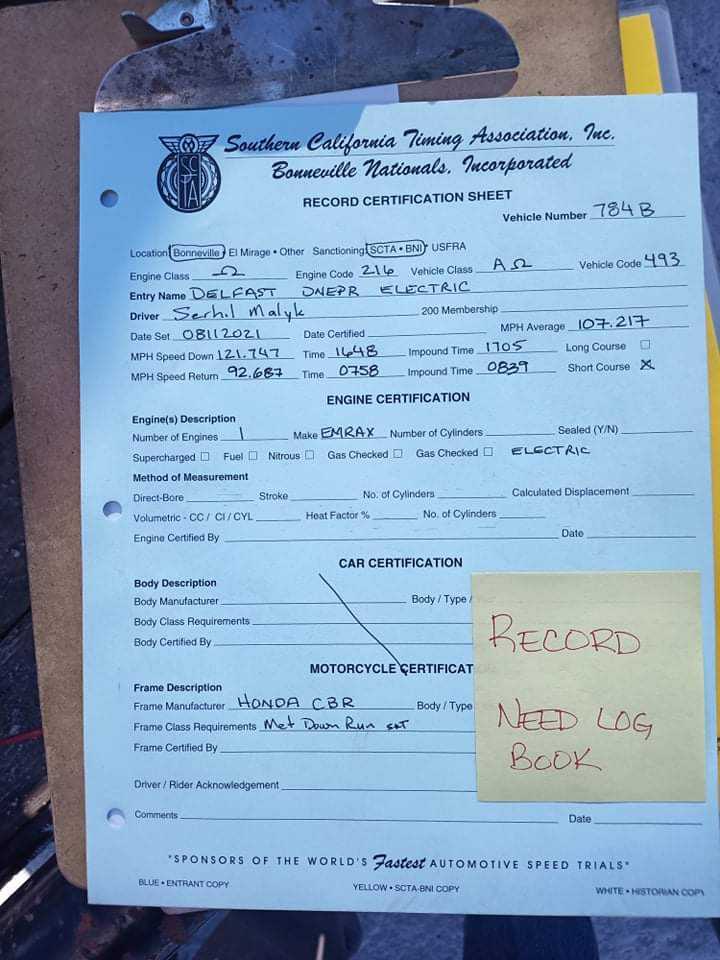 Southern California Timing Association, Inc.
Bonneville Nationals, Incorporated
SCTA
RECORD CERTIFICATION SHEET
Vehicle Number 784 B
Location Bonneville El Mirage • Other Sanctioning SCTA • BNI USFRA
Engine Class Ω Engine Code 216 Vehicle Class A Ω Vehicle Code 493
Entry Name DELFAST DNEPR ELECTRIC
Driver Serhil Malyk 200 Membership
Date Set 08112021 Date Certified MPH Average 107.217
MPH Speed Down 121.747 Time 1648 Impound Time 1705 Long Course
MPH Speed Return 92.687 Time 0758 Impound Time 0839 Short Course X
ENGINE CERTIFICATION
Engine(s) Description
Number of Engines 1 Make EMRAX Number of Cylinders Sealed (Y/N)
Supercharged Fuel Nitrous Gas Checked Gas Checked ELECTRIC
Method of Measurement
Direct-Bore Stroke No. of Cylinders Calculated Displacement
Volumetric - CC / CI / CYL Heat Factor % No. of Cylinders
Engine Certified By Date
CAR CERTIFICATION
Body Description
Body Manufacturer Body / Type /
Body Class Requirements
Body Certified By
MOTORCYCLE CERTIFICAT
Frame Description
Frame Manufacturer HONDA CBR Body / Type
Frame Class Requirements Met Down Run
Frame Certified By
Driver / Rider Acknowledgement
Comments Date
RECORD
NEED LOG
BOOK
"SPONSORS OF THE WORLD'S Fastest AUTOMOTIVE SPEED TRIALS"
BLUE • ENTRANT COPY YELLOW • SCTA-BNI COPY WHITE • HISTORIAN COPY